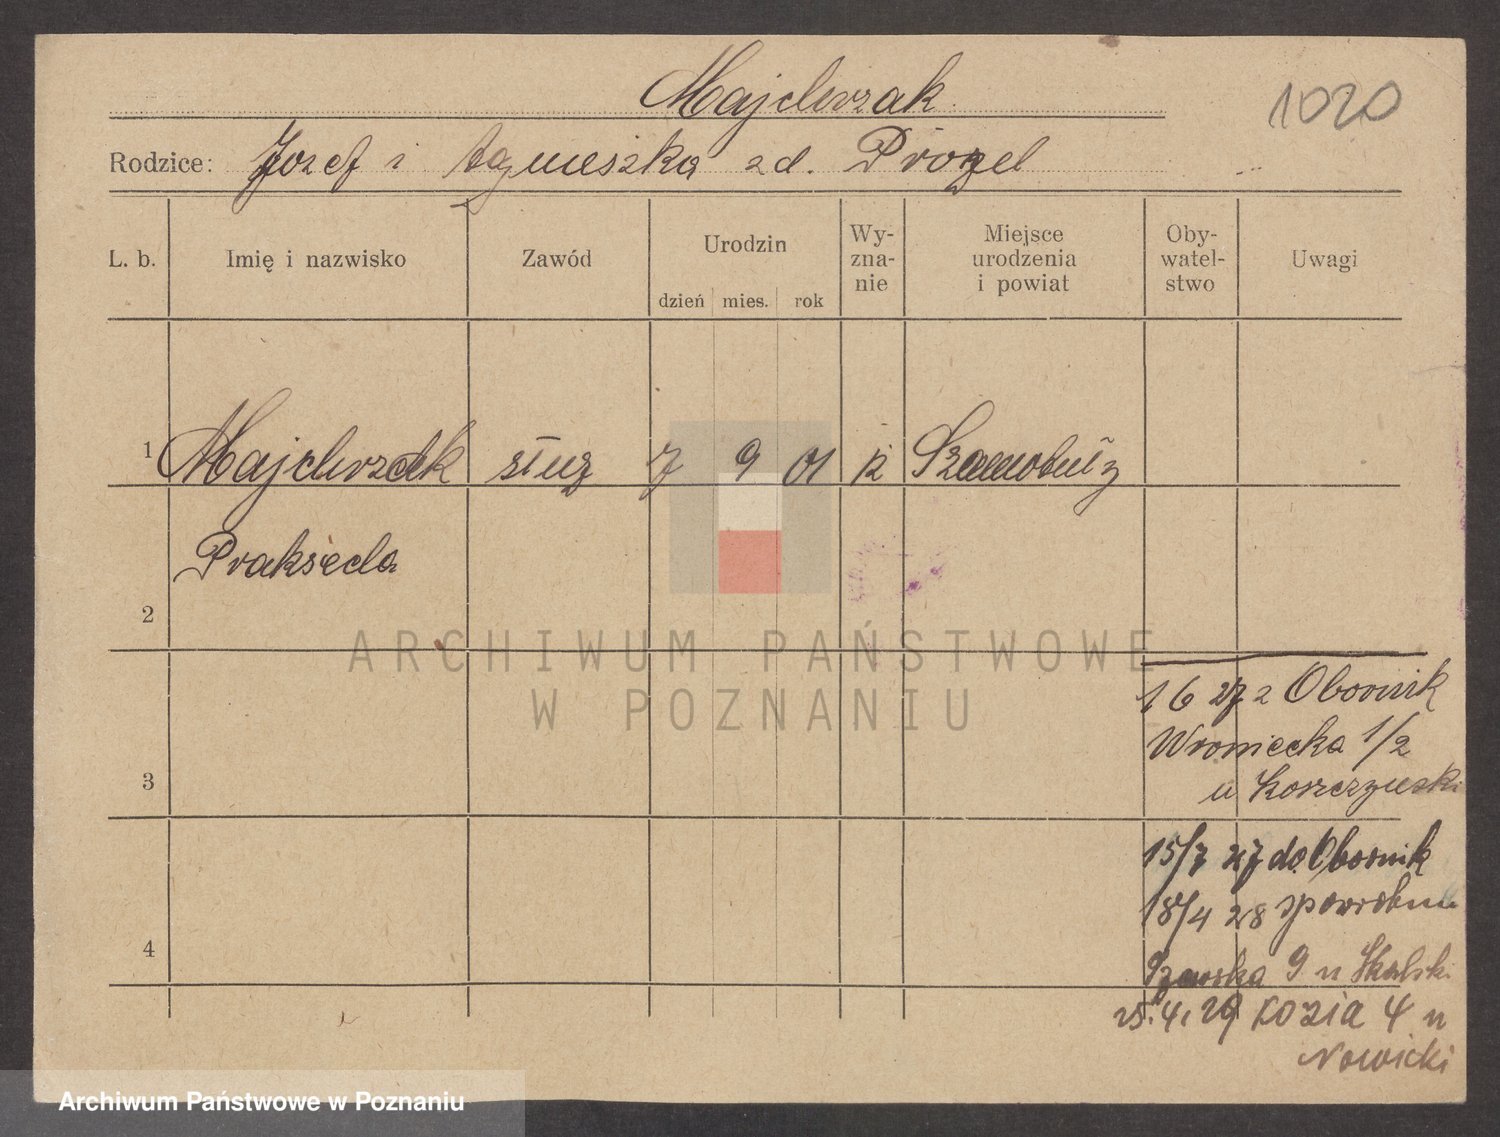 Majchrzak
1020
Rodzice: Józef i Agnieszka zd. Prögel
L. b.
Imię i nazwisko
Zawód
Urodzin
dzień mies. rok
Wy-
zna-
nie
Miejsce
urodzenia
i powiat
Oby-
watel-
stwo
Uwagi
1 Majchrzak służ 7 9 01 k
Prakseda
2
ARCHIWUM PAŃSTWOWE
W POZNANIU
1 6 27 z Obornik
Wroniecka 1/2
3
15/7 27 do Obornik
18/4 28
4
9 u Skalski
25.4.29 Kozia 4 u
Nowicki
Archiwum Państwowe w Poznaniu